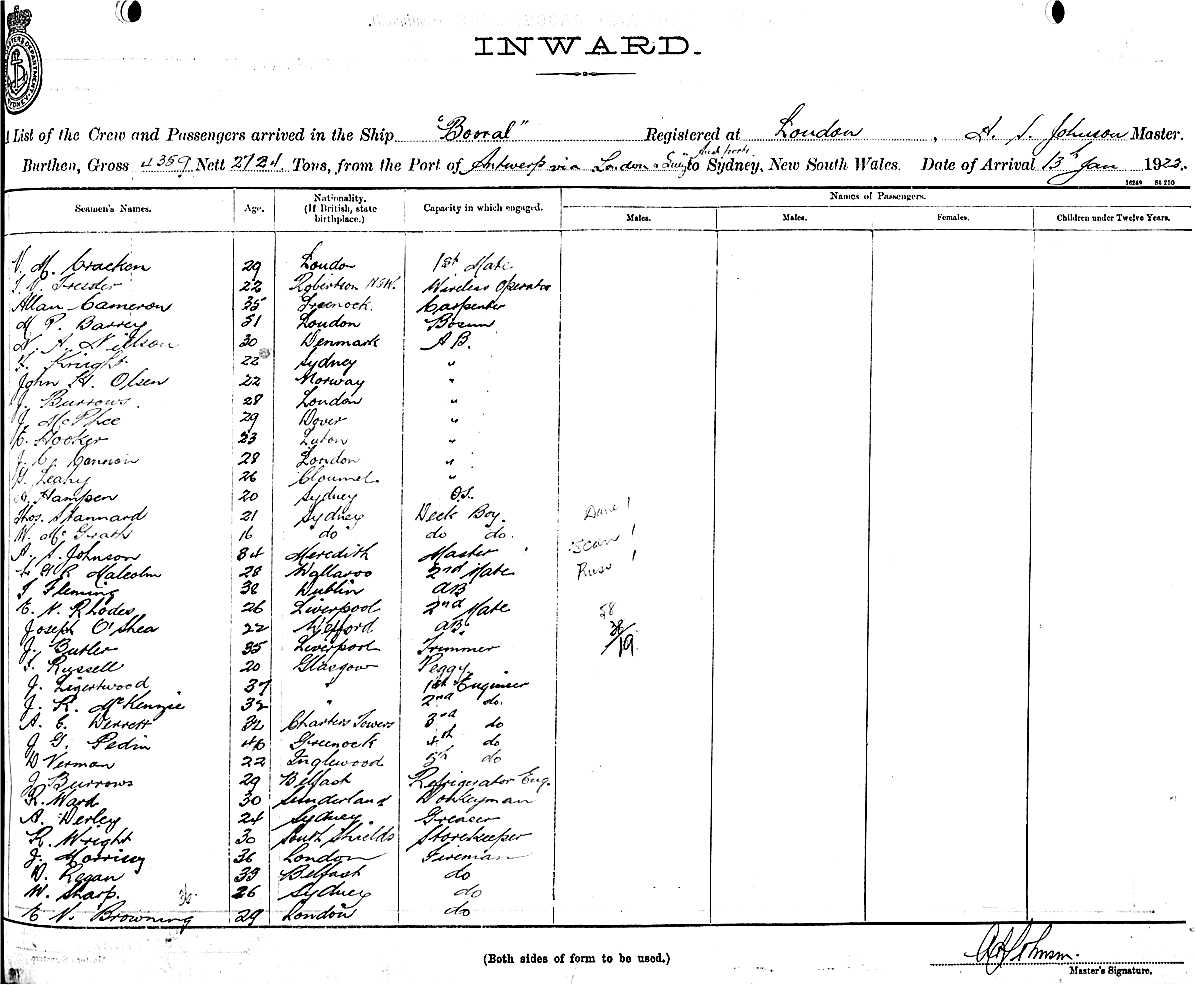 INWARD.
List of the Crew and Passengers arrived in the Ship "Booral" Registered at London, A. S. Johnson Master.
Burthen, Gross 4359 Nett 2724 Tons, from the Port of Antwerp via London & to Sydney, New South Wales. Date of Arrival 13 Jan 1923.
16249 St 210
Seamen's Names. Age. Nationality. (If British, state birthplace.) Capacity in which engaged. Names of Passengers.
Males. Males. Females. Children under Twelve Years.
V. McCracken 29 London 1st Mate
22 Robertson N.S.W. Wireless Operator
Allan Cameron 35 Greenock. Carpenter
M P. Barrey 51 London Bosun
N. A. Nielson 30 Denmark A B.
Knight 22 Sydney "
John H. Olsen 22 Norway "
J. Burrows 28 London "
J. McPhee 29 Dover "
E. Hocker 23 Luton "
J. C. Cannon 28 London "
Leahy 26 Clonmel "
Hampen 20 Sydney O.S.
Thos. Stannard 21 Sydney Deck Boy. Dane 1
W. McGrath 16 do do do. Scan 1
A. S. Johnson 34 Meredith Master
Malcolm 28 Wallaroo 2nd Mate Russ 1
T Fleming 38 Dublin AB
E. N. Rhodes 26 Liverpool 2nd Mate 58
Joseph O'Shea 22 Wexford AB 38
J. Butler 35 Liverpool Trimmer 19.
T. Russell 20 Glasgow Peggy
J. Ligertwood 37 " 1st Engineer
J. R. McKenzie 32 " 2nd do.
A. E. Derrett 32 Charters Towers 3rd do
J G. Pedin 46 Greenock 4th do
D Verman 22 Inglewood 5th do
J Burrows 29 Belfast Refrigerator Eng.
R. Ward 30 Sunderland Donkeyman
A. Derley 24 Sydney Greaser
R. Wright 30 South Shields Storekeeper
J. Morrisey 36 London Fireman
D. Regan 39 Belfast do
W. Sharp. 26 Sydney do
E N. Browning 29 London do
(Both sides of form to be used.)
A S Johnson.
Master's Signature.